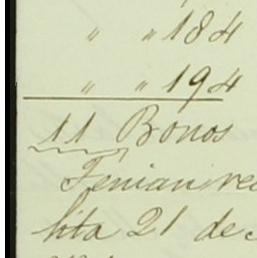 " " 184
" " 194
11 Bonos
Tenian re
hta 21 de